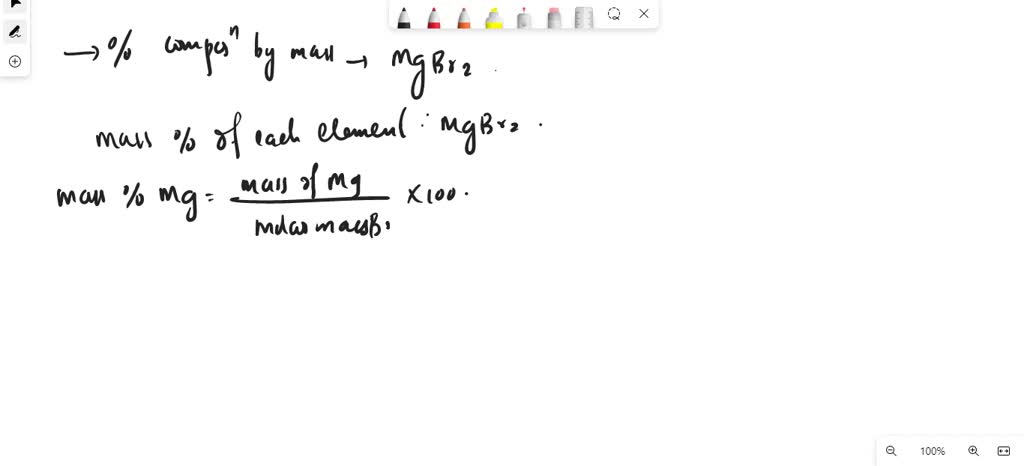 → % composⁿ by mass → MgBr₂ .
mass % of each element : MgBr₂ .
mass % Mg = mass of Mg
molar mass B
× 100 .
100%